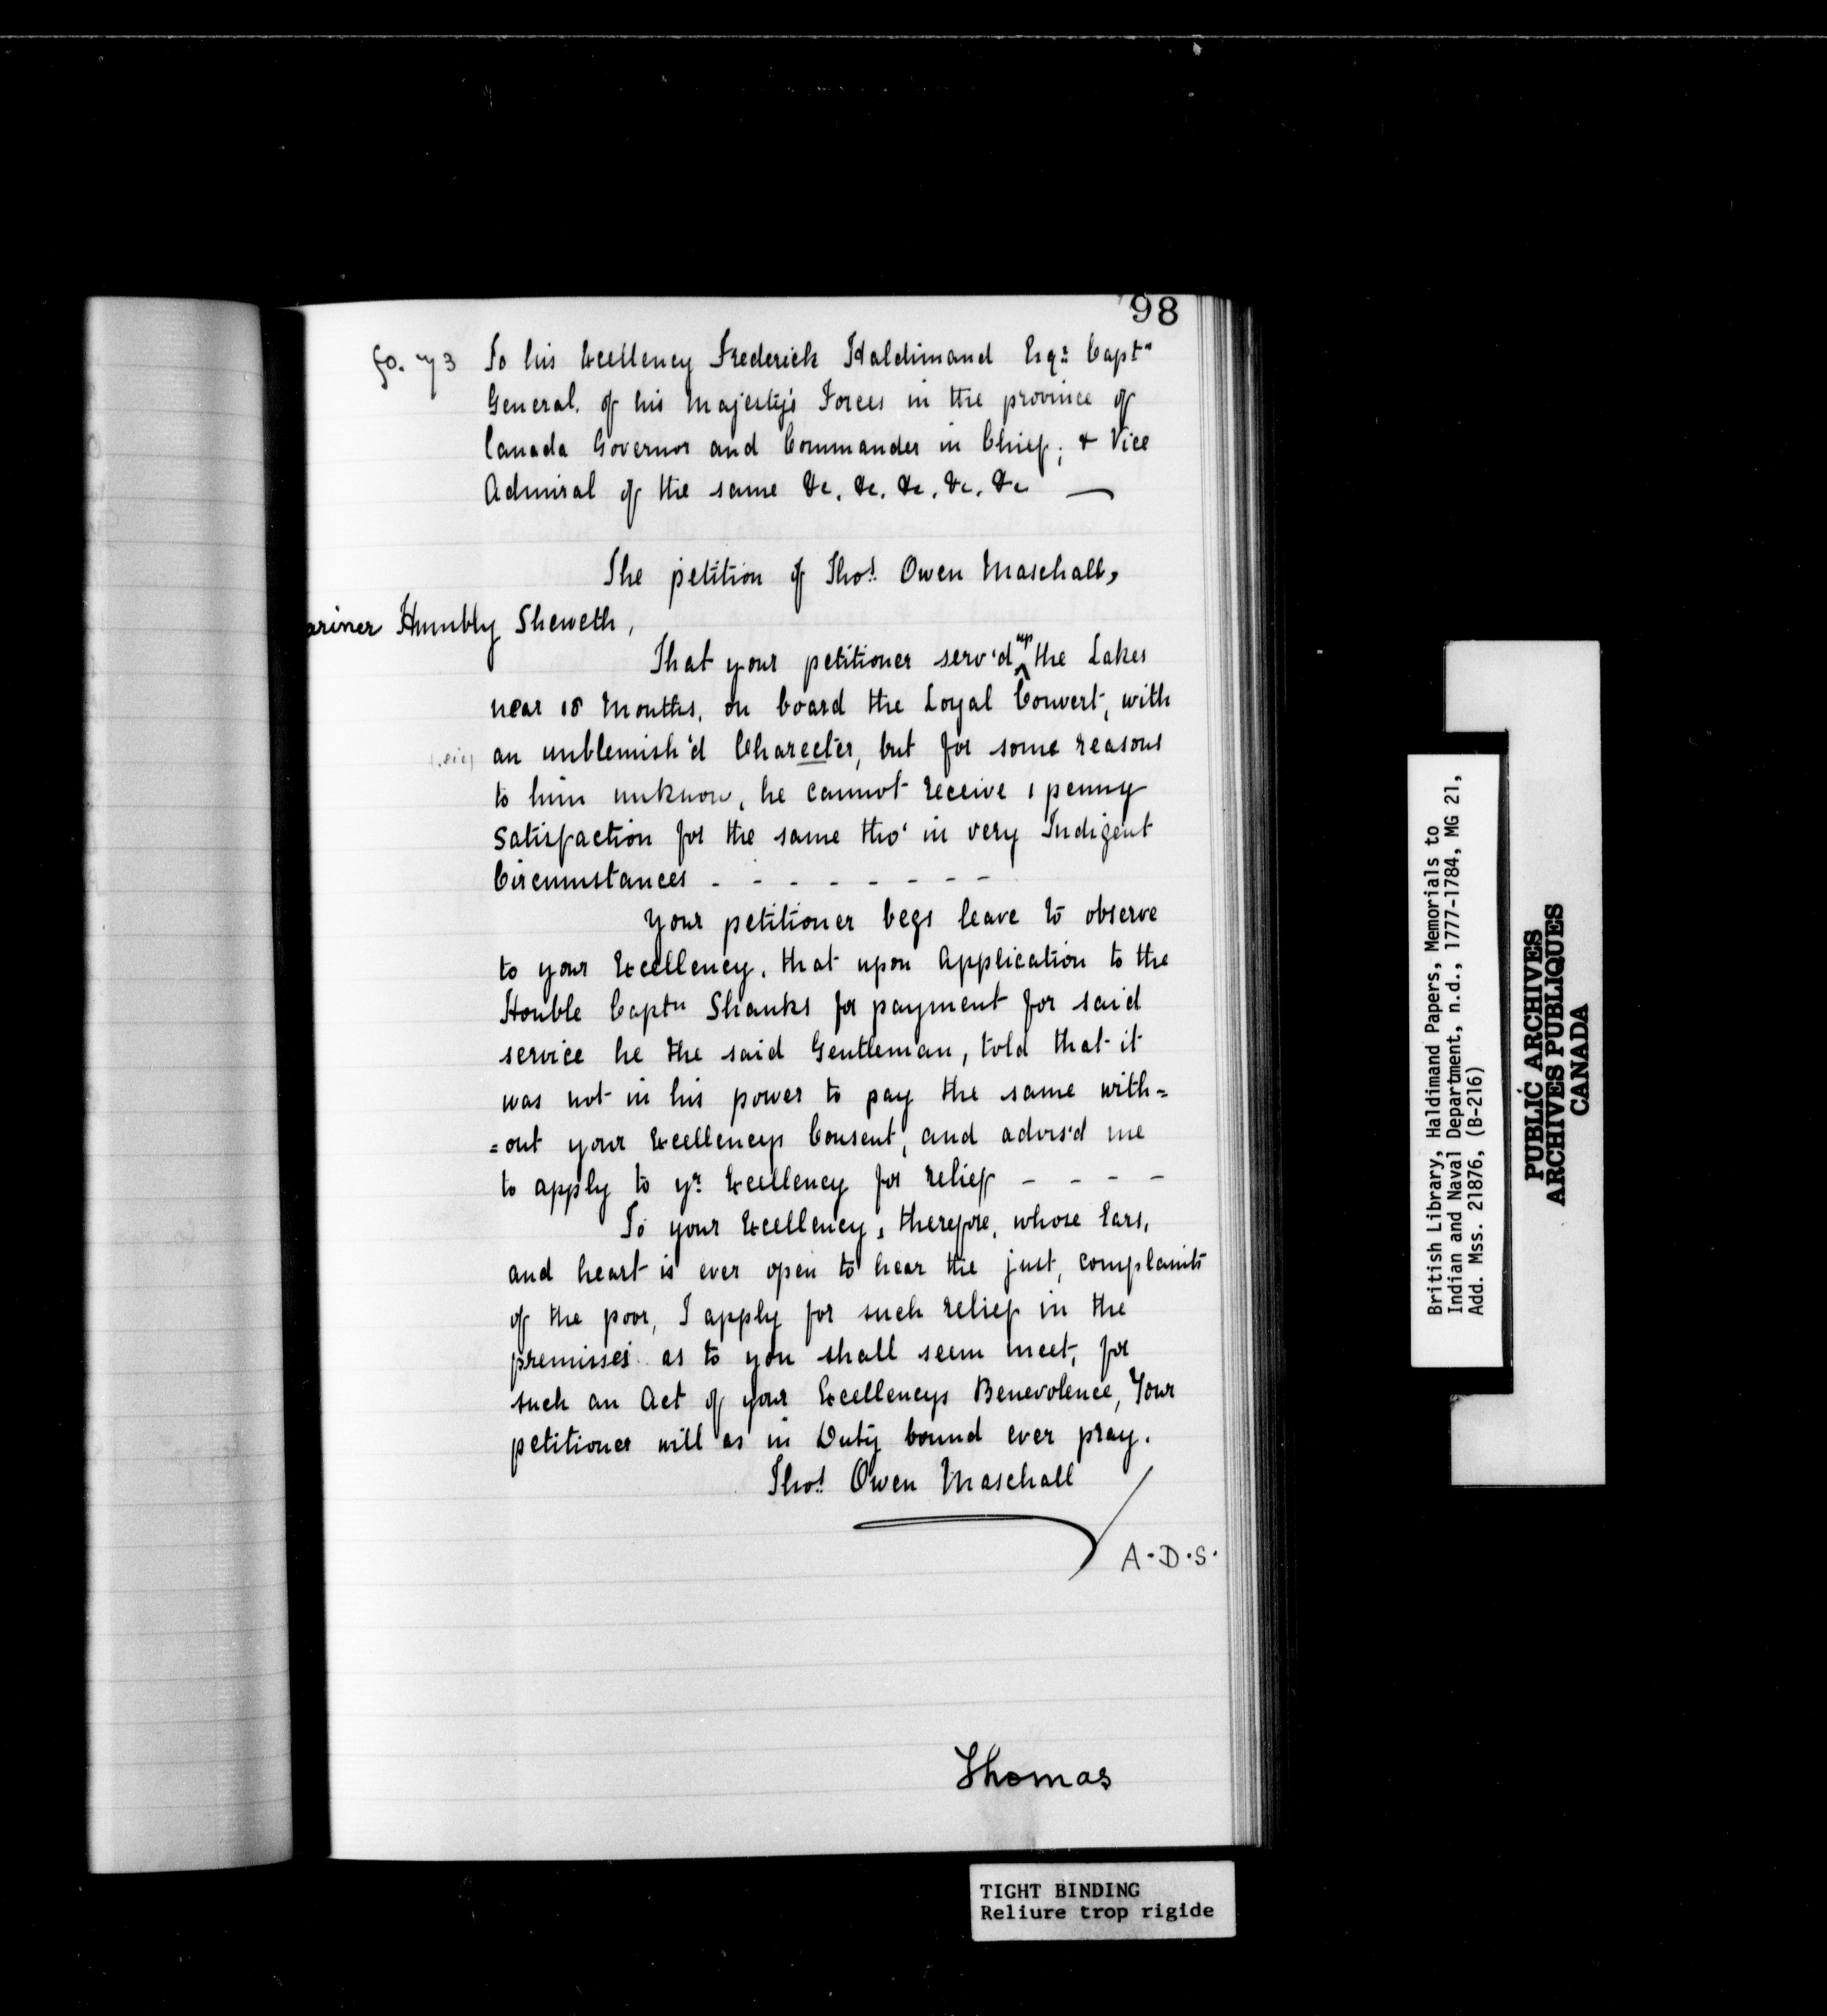 98
fo. 73 To his Excellency Frederick Haldimand Esqr. Captn
General. of his Majesty's Forces in the province of
Canada Governor and Commander in Chief; & Vice
Admiral of the same &c. &c. &c. &c. &c —
The petition of Thos. Owen Maschall,
ariner Humbly Sheweth,
That your petitioner serv'd up the Lakes
near 18 Months, on board the Loyal Convert, with
(sic) an unblemish'd Charecter, but for some reasons
to him unknow, he cannot receive 1 penny
Satisfaction for the same tho' in very Indigent
Circumstances - - - - - - - -
Your petitioner begs leave to observe
to your Excellency, that upon Application to the
Honble Captn Shanks for payment for said
service he the said Gentleman, told that it
was not in his power to pay the same with=
=out your Excellencys Consent, and advis'd me
to apply to yr. Excellency for relief - - - -
To your Excellency, therefore, whose Ears,
and heart is ever open to hear the just, complaints
of the poor, I apply for such relief in the
premisses as to you shall seem meet, for
such an Act of your Excellencys Benevolence, Your
petitioner will as in Duty bound ever pray.
Thos. Owen Maschall
A.D.S.
Thomas
TIGHT BINDING
Reliure trop rigide
British Library, Haldimand Papers, Memorials to
Indian and Naval Department, n.d., 1777-1784, MG 21,
Add. Mss. 21876, (B-216)
PUBLIC ARCHIVES
ARCHIVES PUBLIQUES
CANADA